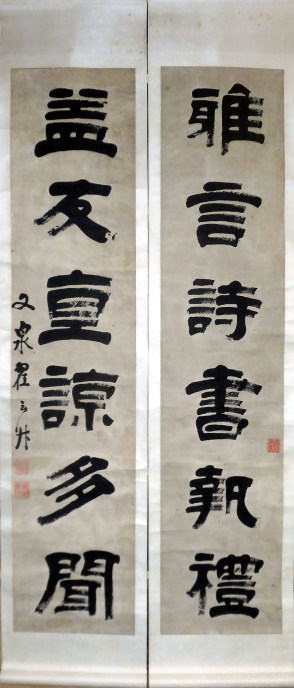 雅言詩書執禮
益友直諒多聞
文泉翟云升